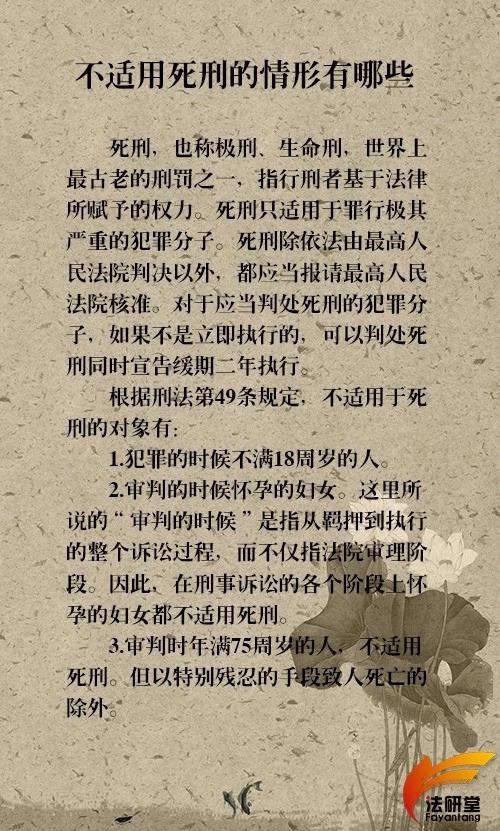 不适用死刑的情形有哪些
死刑，也称极刑、生命刑，世界上
最古老的刑罚之一，指行刑者基于法律
所赋予的权力。死刑只适用于罪行极其
严重的犯罪分子。死刑除依法由最高人
民法院判决以外，都应当报请最高人民
法院核准。对于应当判处死刑的犯罪分
子，如果不是立即执行的，可以判处死
刑同时宣告缓期二年执行。
根据刑法第49条规定，不适用于死
刑的对象有：
1.犯罪的时候不满18周岁的人。
2.审判的时候怀孕的妇女。这里所
说的“审判的时候”是指从羁押到执行
的整个诉讼过程，而不仅指法院审理阶
段。因此，在刑事诉讼的各个阶段上怀
孕的妇女都不适用死刑。
3.审判时年满75周岁的人，不适用
死刑。但以特别残忍的手段致人死亡的
除外。
法研堂
Fayantang